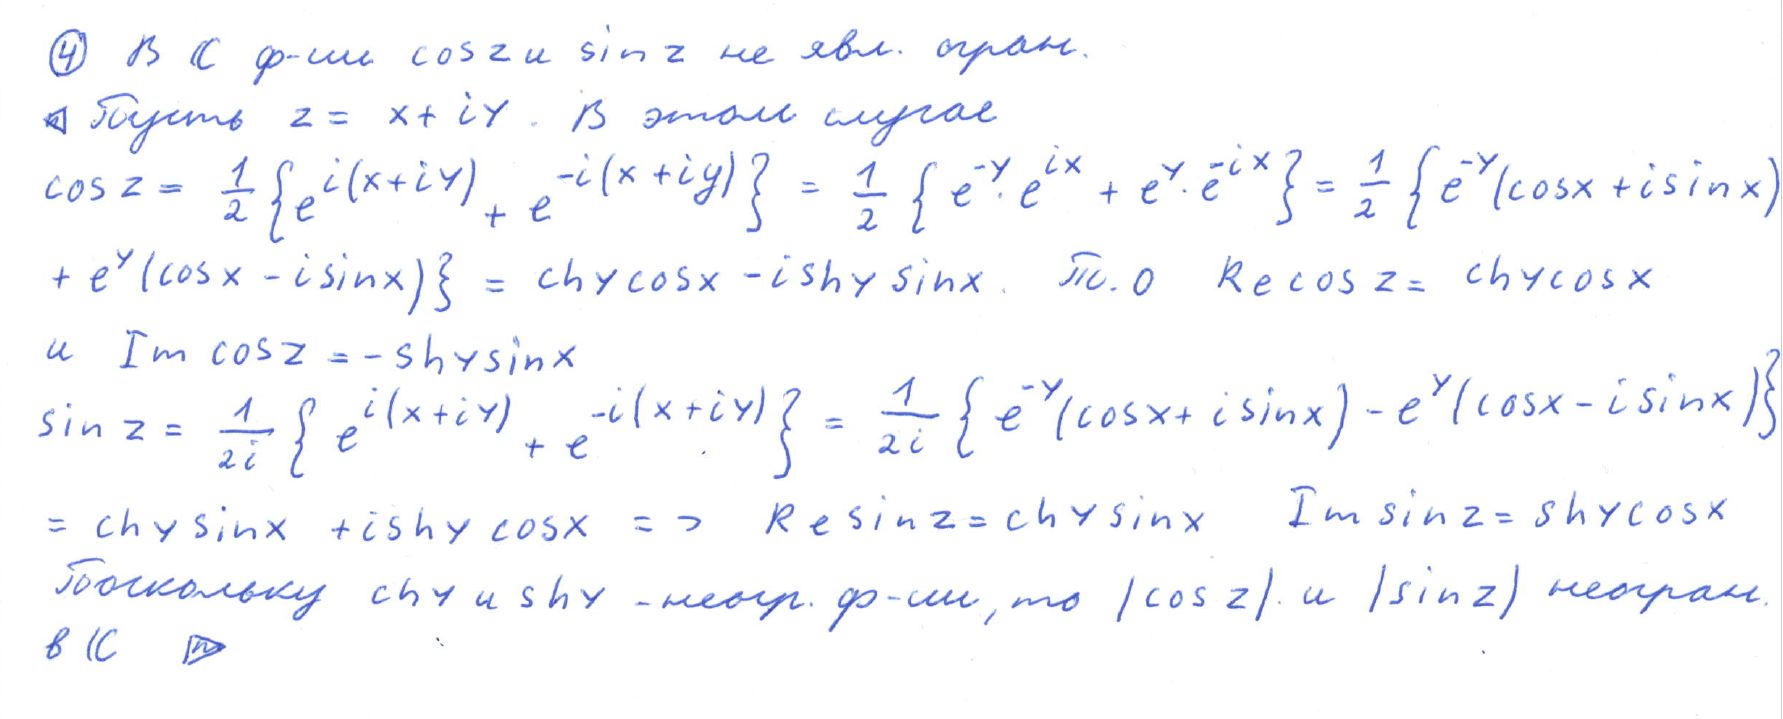 ④ В ℂ ф-ции cos z и sin z не явл. огран.
◁ Пусть z = x + iy. В этом случае
cos z = 1/2 {e^{i(x+iy)} + e^{-i(x+iy)}} = 1/2 {e^{-y}·e^{ix} + e^{y}·e^{-ix}} = 1/2 {e^{-y}(cosx + isinx)
+ e^{y}(cosx - isinx)} = chy cosx - ishy sinx. Т.о Re cos z = chy cosx
и Im cos z = - shy sinx
sin z = 1/2i {e^{i(x+iy)} + e^{-i(x+iy)}} = 1/2i {e^{-y}(cosx + isinx) - e^{y}(cosx - isinx)}
= chy sinx + ishy cosx => Re sin z = chy sinx Im sin z = shy cosx
Поскольку chy и shy - неогр. ф-ции, то |cos z| и |sin z| неогран.
в ℂ ▷